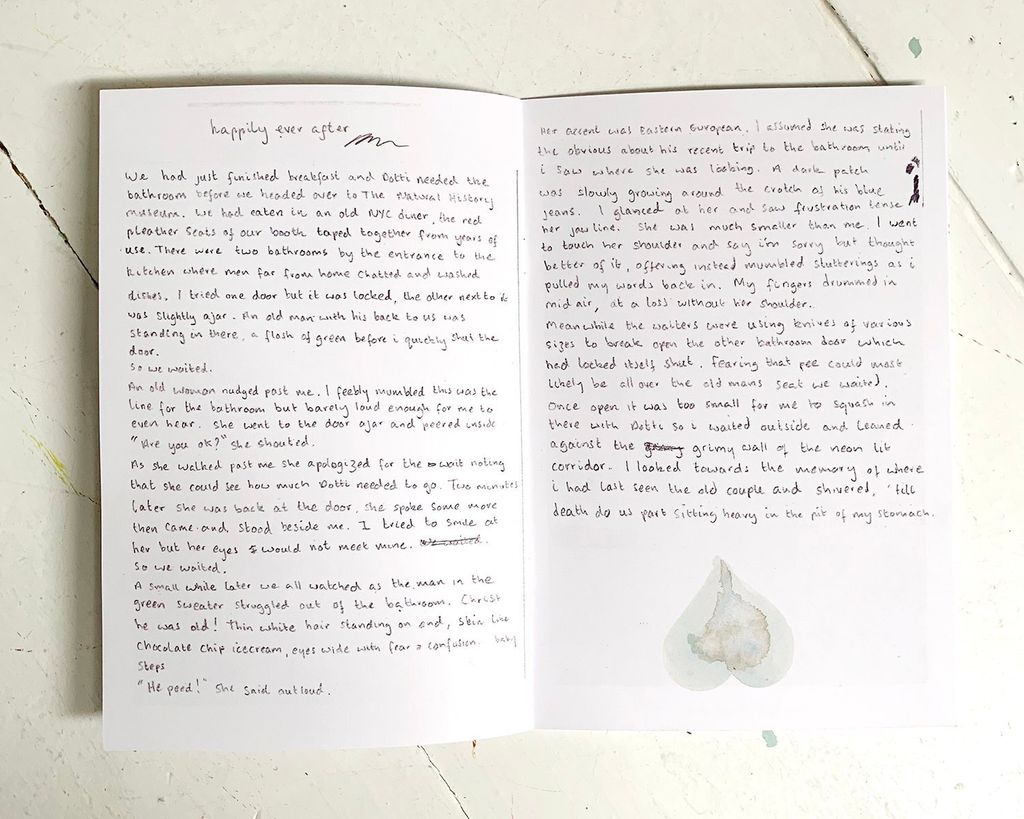 happily ever after
We had just finished breakfast and Dotti needed the
bathroom before we headed over to The Natural History
museum. We had eaten in an old NYC diner, the red
pleather seats of our booth taped together from years of
use. There were two bathrooms by the entrance to the
kitchen where men far from home chatted and washed
dishes. I tried one door but it was locked, the other next to it
was slightly ajar. An old man with his back to us was
standing in there, a flash of green before i quickly shut the
door.
So we waited.
An old woman nudged past me. I feebly mumbled this was the
line for the bathroom but barely loud enough for me to
even hear. She went to the door ajar and peered inside.
"Are you ok?" she shouted.
As she walked past me she apologized for the wait noting
that she could see how much Dotti needed to go. Two minutes
later she was back at the door. She spoke some more
then came and stood beside me. I tried to smile at
her but her eyes would not meet mine. We waited.
So we waited.
A small while later we all watched as the man in the
green sweater struggled out of the bathroom. Christ
he was old! Thin white hair standing on end, skin like
chocolate chip icecream, eyes wide with fear + confusion. baby
steps
"He peed!" She said outloud.
Her accent was Eastern European. I assumed she was stating
the obvious about his recent trip to the bathroom until
i saw where she was looking. A dark patch
was slowly growing around the crotch of his blue
jeans. I glanced at her and saw frustration tense
her jaw line. She was much smaller than me. I went
to touch her shoulder and say i'm sorry but thought
better of it, offering instead mumbled stutterings as i
pulled my words back in. My fingers drummed in
mid air, at a loss without her shoulder.
Meanwhile the waiters were using knives of various
sizes to break open the other bathroom door which
had locked itself shut. Fearing that pee could most
likely be all over the old mans seat we waited.
Once open it was too small for me to squash in
there with Dotti so i waited outside and leaned
against the grimy wall of the neon lit
corridor. I looked towards the memory of where
i had last seen the old couple and shivered, 'till
death do us part sitting heavy in the pit of my stomach.